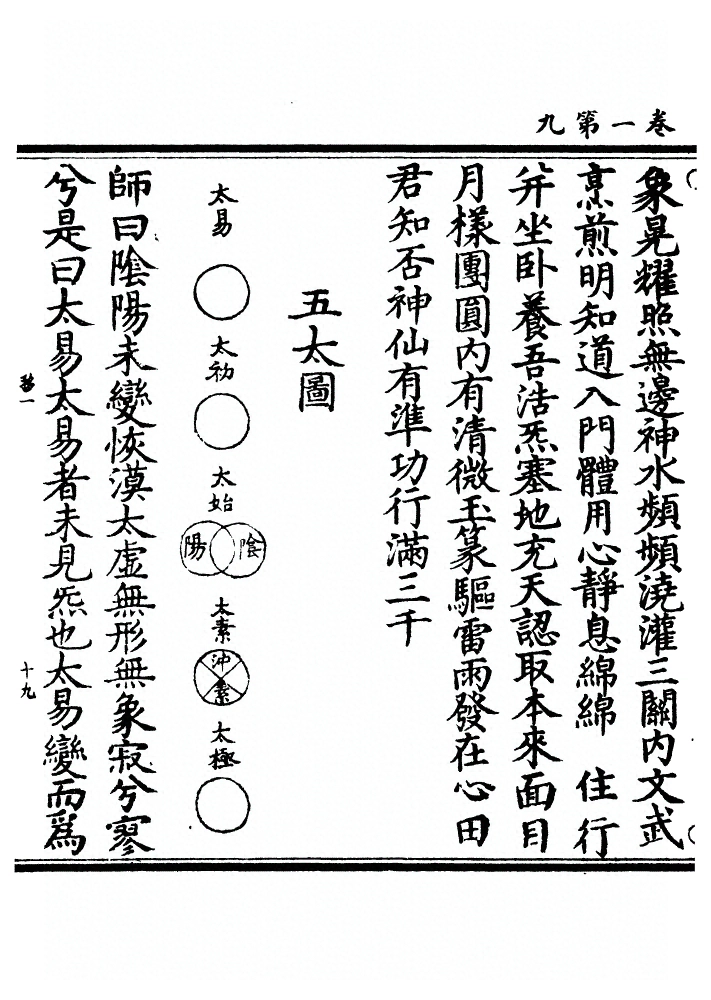 卷一第九
象晃耀照無邊神水頻頻澆灌三關內文武
烹煎明知道入門體用心靜息綿綿　住行
并坐臥養吾浩炁塞地充天認取本來面目
月樣團圓內有清微玉篆驅雷雨發在心田
君知否神仙有準功行滿三千
五太圖
太易
太初
太始
陽 陰
太素
沖
素
太極
師曰陰陽未變恢漠太虛無形無象寂兮寥
兮是曰太易太易者未見炁也太易變而爲
十九